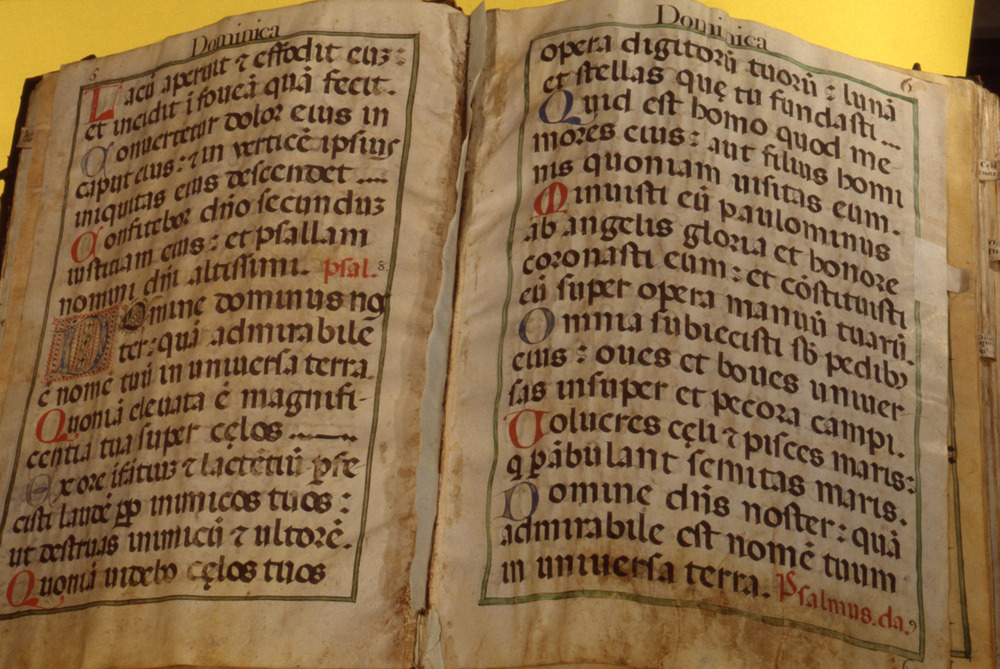 Dominica
5
Lacū aperuit ⁊ effodit euz:
et incidit ī foueā quā fecit.
Conuertetur dolor eius in
caput eius: ⁊ in verticē ipsius
iniquitas eius descendet
Confitebor dn̄o secunduz
iustitiam eius: et psallam
nomini dn̄i altissimi. Psal. 8.
Domine dominus nos
ter: quā admirabile
ē nomē tuū in uniuersa terra.
Quoniā eleuata ē magnifi-
centia tua super cęlos
Ex ore ifātiuz ⁊ lactētiū ꝑfe
cisti laudē ꝓp inimicos tuos:
ut destruas inimicū ⁊ ultorē.
Quoniā uidebo cęlos tuos
Dominica
6
opera digitorū tuorū: lunā
et stellas quę tu fundasti
Quid est homo quod me-
mores eius: aut filius homi
nis quoniam uisitas eum.
Minuisti eū paulominus
ab angelis gloria et honore
coronasti eum: et cōstituisti
eū super opera manuū tuarū.
Omnia subiecisti sb̄ pedibꝰ
eius: oues et boues uniuer
sas insuper et pecora campi.
Uolucres cęli ⁊ pisces maris:
q ꝑābulant semitas maris.
Domine dn̄s noster: quā
admirabile est nomē tuum
in uniuersa terra. Psalmus. da. 9